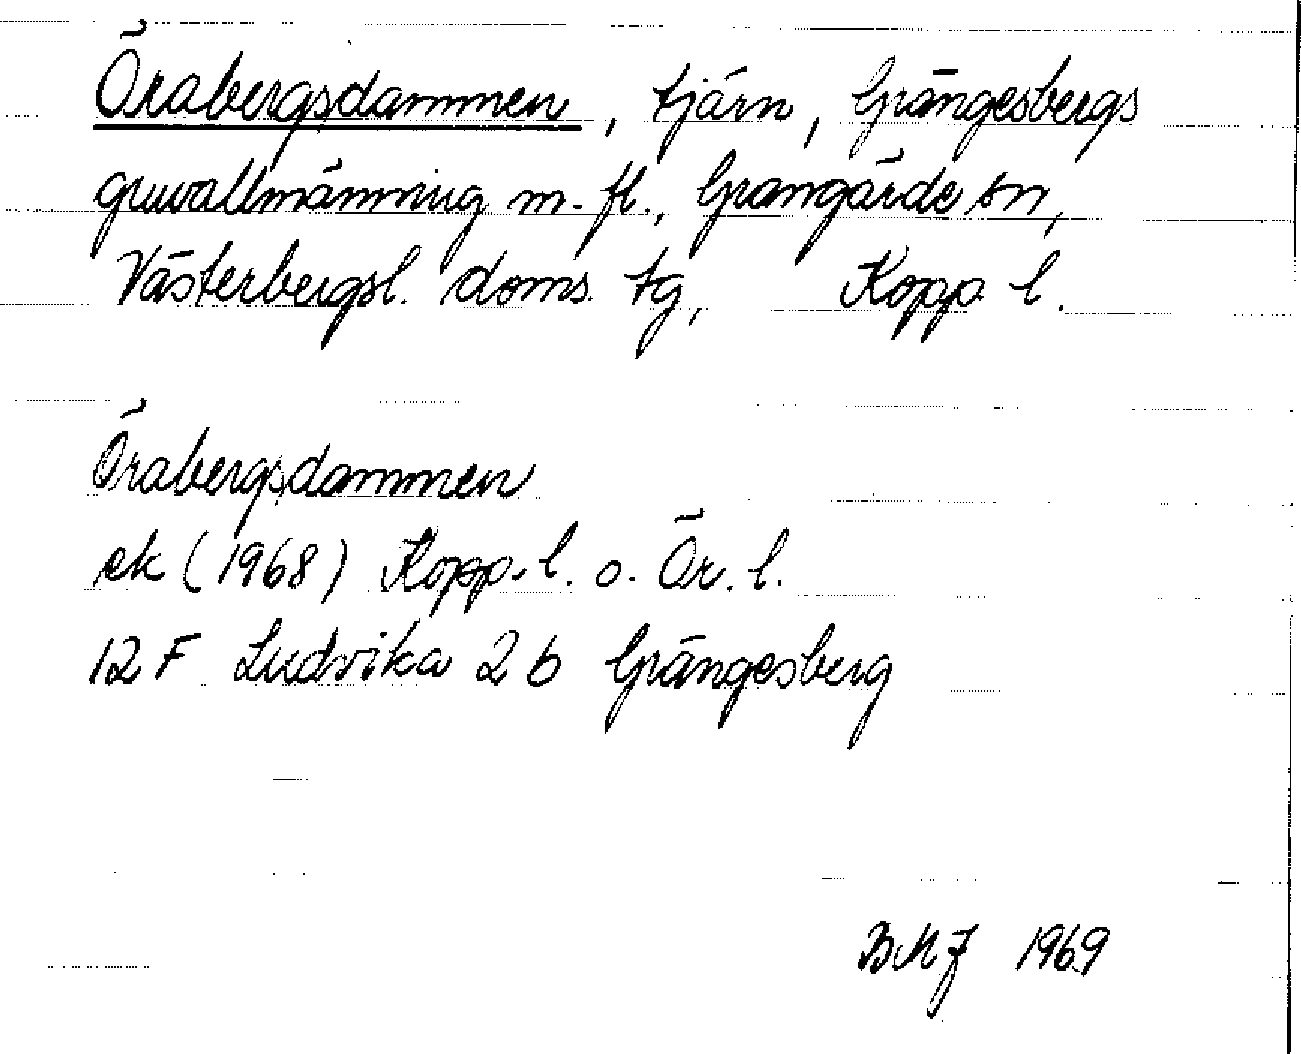 Örabergsdammen, tjärn, Grängesbergs
gruvallmänning m. fl., Grangärde sn,
Västerbergsl. doms. tg, Kopp. l.
Örabergsdammen
ek (1968) Kopp. l. o. Ör. l.
12 F Ludvika 2 b Grängesberg
BMJ 1969